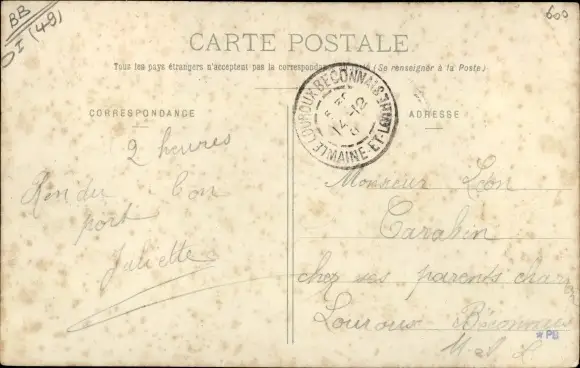 BB
(49)
600
CARTE POSTALE
Tous les pays étrangers n'acceptent pas la correspondance (Se renseigner à la Poste)
CORRESPONDANCE
ADRESSE
LE LOUROUX BECONNAIS
MAINE-ET-LOIRE
14-12
2 heures
Rendu Bon
port
Juliette
Monsieur Léon
Carabin
chez ses parents
Louroux Béconnais
M-et L
*PB